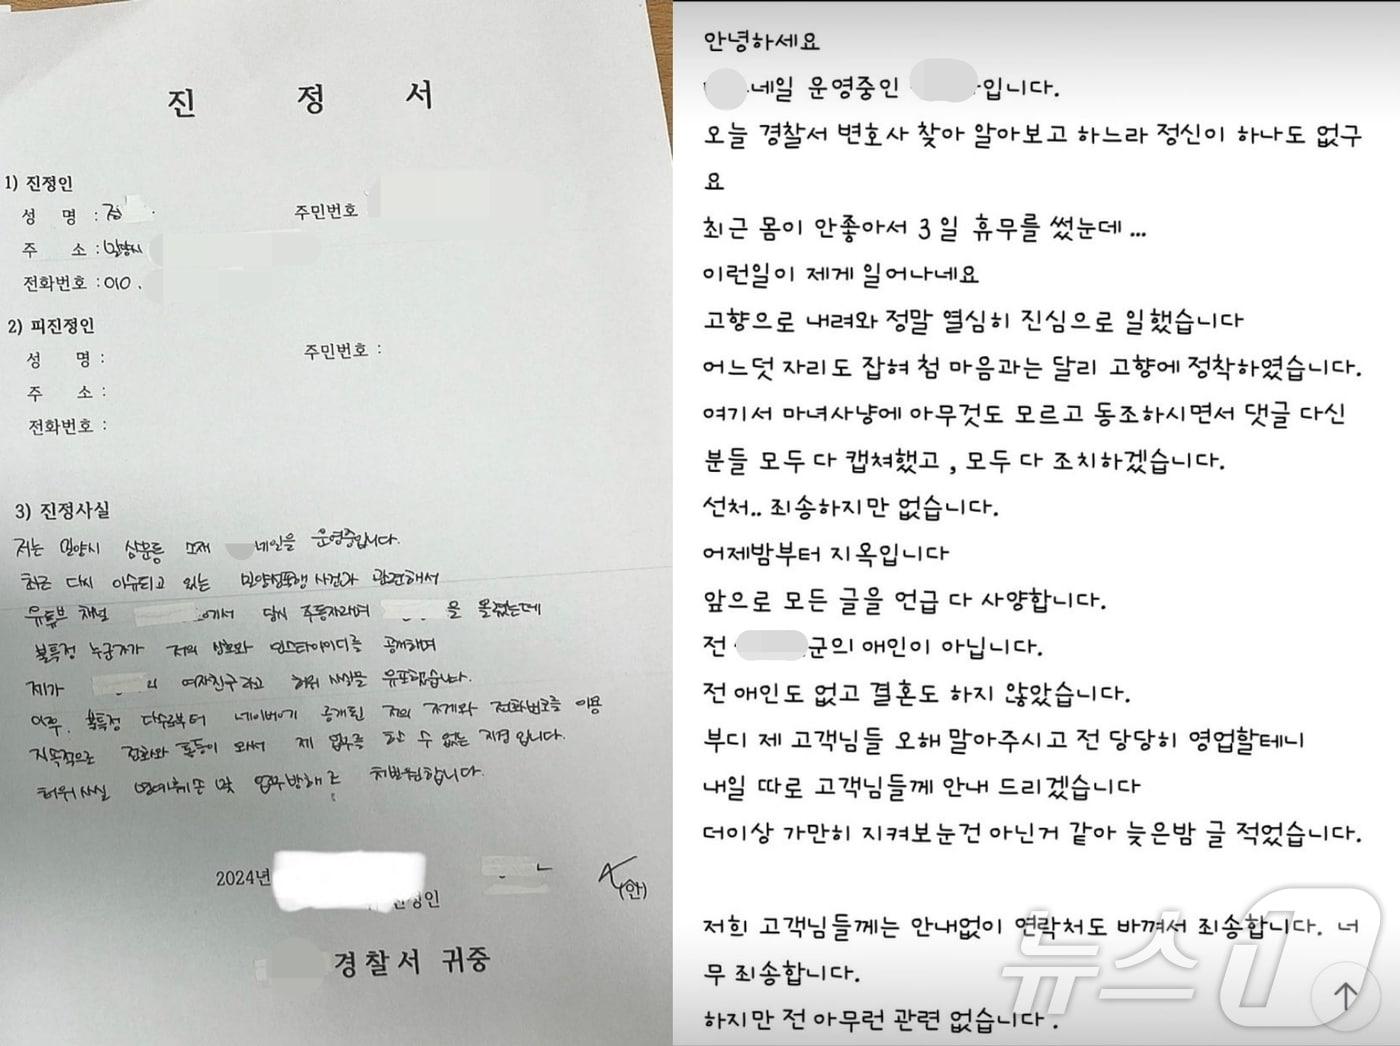 진 정 서
1) 진정인
성 명 : 정 주민번호
주 소 : 밀양시
전화번호 : 010.
2) 피진정인
성 명 : 주민번호 :
주 소 :
전화번호 :
3) 진정사실
저는 밀양시 삼문동 소재 네일을 운영중입니다.
최근 다시 이슈되고 있는 밀양성폭행 사건과 관련해서
유튜브 채널 에서 당시 주동자라며 을 올렸는데
불특정 누군가가 저의 상호와 인스타아이디를 공개하며
제가 의 여자친구라고 허위 사실을 유포했습니다.
이후, 불특정 다수로부터 네이버에 공개된 저의 가게와 전화번호를 이용
지속적으로 전화와 톡등이 와서 제 업무를 할 수 없는 지경입니다.
허위사실 명예훼손 및 업무방해로 처벌원합니다.
2024년
진정인
(인)
경찰서 귀중
안녕하세요
네일 운영중인 입니다.
오늘 경찰서 변호사 찾아 알아보고 하느라 정신이 하나도 없구
요
최근 몸이 안좋아서 3일 휴무를 썼눈데...
이런일이 제게 일어나네요
고향으로 내려와 정말 열심히 진심으로 일했습니다
어느덧 자리도 잡혀 첨 마음과는 달리 고향에 정착하였습니다.
여기서 마녀사냥에 아무것도 모르고 동조하시면서 댓글 다신
분들 모두 다 캡쳐했고 , 모두 다 조치하겠습니다.
선처.. 죄송하지만 없습니다.
어제밤부터 지옥입니다
앞으로 모든 글을 언급 다 사양합니다.
전 군의 애인이 아닙니다.
전 애인도 없고 결혼도 하지 않았습니다.
부디 제 고객님들 오해 말아주시고 전 당당히 영업할테니
내일 따로 고객님들께 안내 드리겠습니다
더이상 가만히 지켜보눈건 아닌거 같아 늦은밤 글 적었습니다.
저희 고객님들께는 안내없이 연락처도 바껴서 죄송합니다. 너
무 죄송합니다.
하지만 전 아무런 관련 없습니다 .
뉴스1